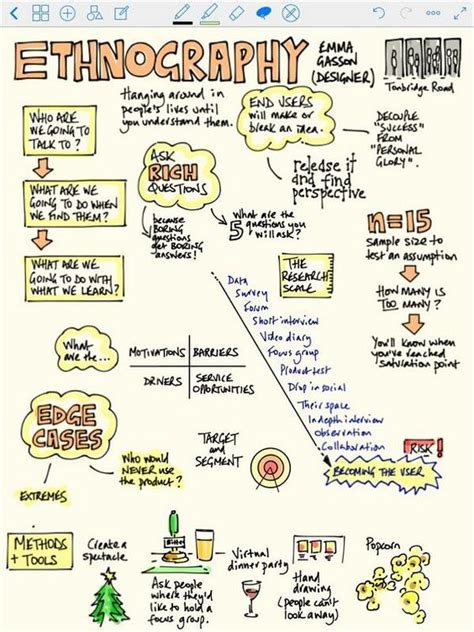 ETHNOGRAPHY
EMMA
GASSON
(DESIGNER)
Tonbridge Road
Hanging around in
people's lives until
you understand them.
END USERS
will make or
break an idea.
DECOUPLE
"SUCCESS"
FROM
"PERSONAL
GLORY".
WHO ARE
WE GOING TO
TALK TO?
WHAT ARE WE
GOING TO DO WHEN
WE FIND THEM?
WHAT ARE WE
GOING TO DO WITH
WHAT WE LEARN?
ASK
RICH
QUESTIONS
because
BORING
questions
get BORING
answers!
What are the
5 questions you
will ask?
release it
and find
perspective
n=15
sample size to
test an assumption
HOW MANY IS
TOO MANY?
You'll know when
you've reached
saturation point
THE
RESEARCH
SCALE
Data
Survey
Forum
Short interview
Video diary
Focus group
Product test
Drop in social
Their space
Indepth interview
Observation
Collaboration
RISK!
BECOMING THE USER
What
are the...
MOTIVATIONS
BARRIERS
DRIVERS
SERVICE
OPPORTUNITIES
EDGE
CASES
EXTREMES
Who would
NEVER use
the product?
TARGET
and
SEGMENT
METHODS +
TOOLS
Create a
spectacle
Ask people
where they'd
like to hold a
focus group.
Virtual
dinner party
Hand
drawing
(people can't
look away)
Popcorn